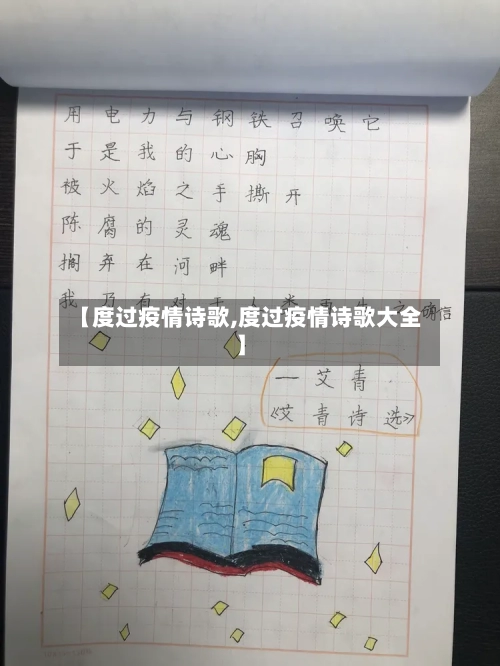 用电力与钢铁召唤它
于是我的心胸
被火焰之手撕开
陈腐的灵魂
搁弃在河畔
我乃有对于人类再生之确信
【度过疫情诗歌,度过疫情诗歌大全
】
一艾青
《艾青诗选》